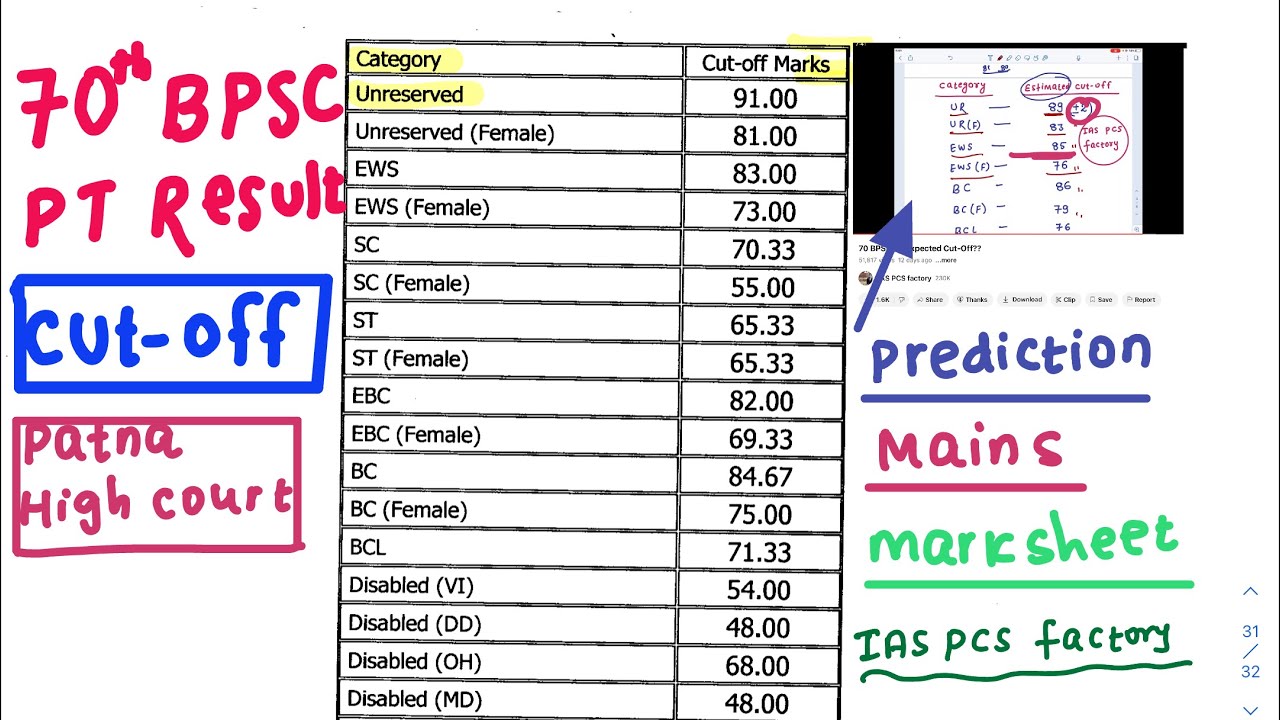 70th BPSC
PT Result
Cut-off
Patna
High court
Category Cut-off Marks
Unreserved 91.00
Unreserved (Female) 81.00
EWS 83.00
EWS (Female) 73.00
SC 70.33
SC (Female) 55.00
ST 65.33
ST (Female) 65.33
EBC 82.00
EBC (Female) 69.33
BC 84.67
BC (Female) 75.00
BCL 71.33
Disabled (VI) 54.00
Disabled (DD) 48.00
Disabled (OH) 68.00
Disabled (MD) 48.00
Category Estimated cut-off
UR — 89 ±2
UR(F) — 83
EWS — 85 "
EWS(F) — 76 "
BC — 86 "
BC(F) — 79 "
BCL — 76
IAS PCS
factory
70 BPSC Expected Cut-Off??
12 days ago ...more
IAS PCS factory 230K
1.6K Share Thanks Download Clip Save Report
Prediction
Mains
marksheet
IAS PCS factory
31
/
32